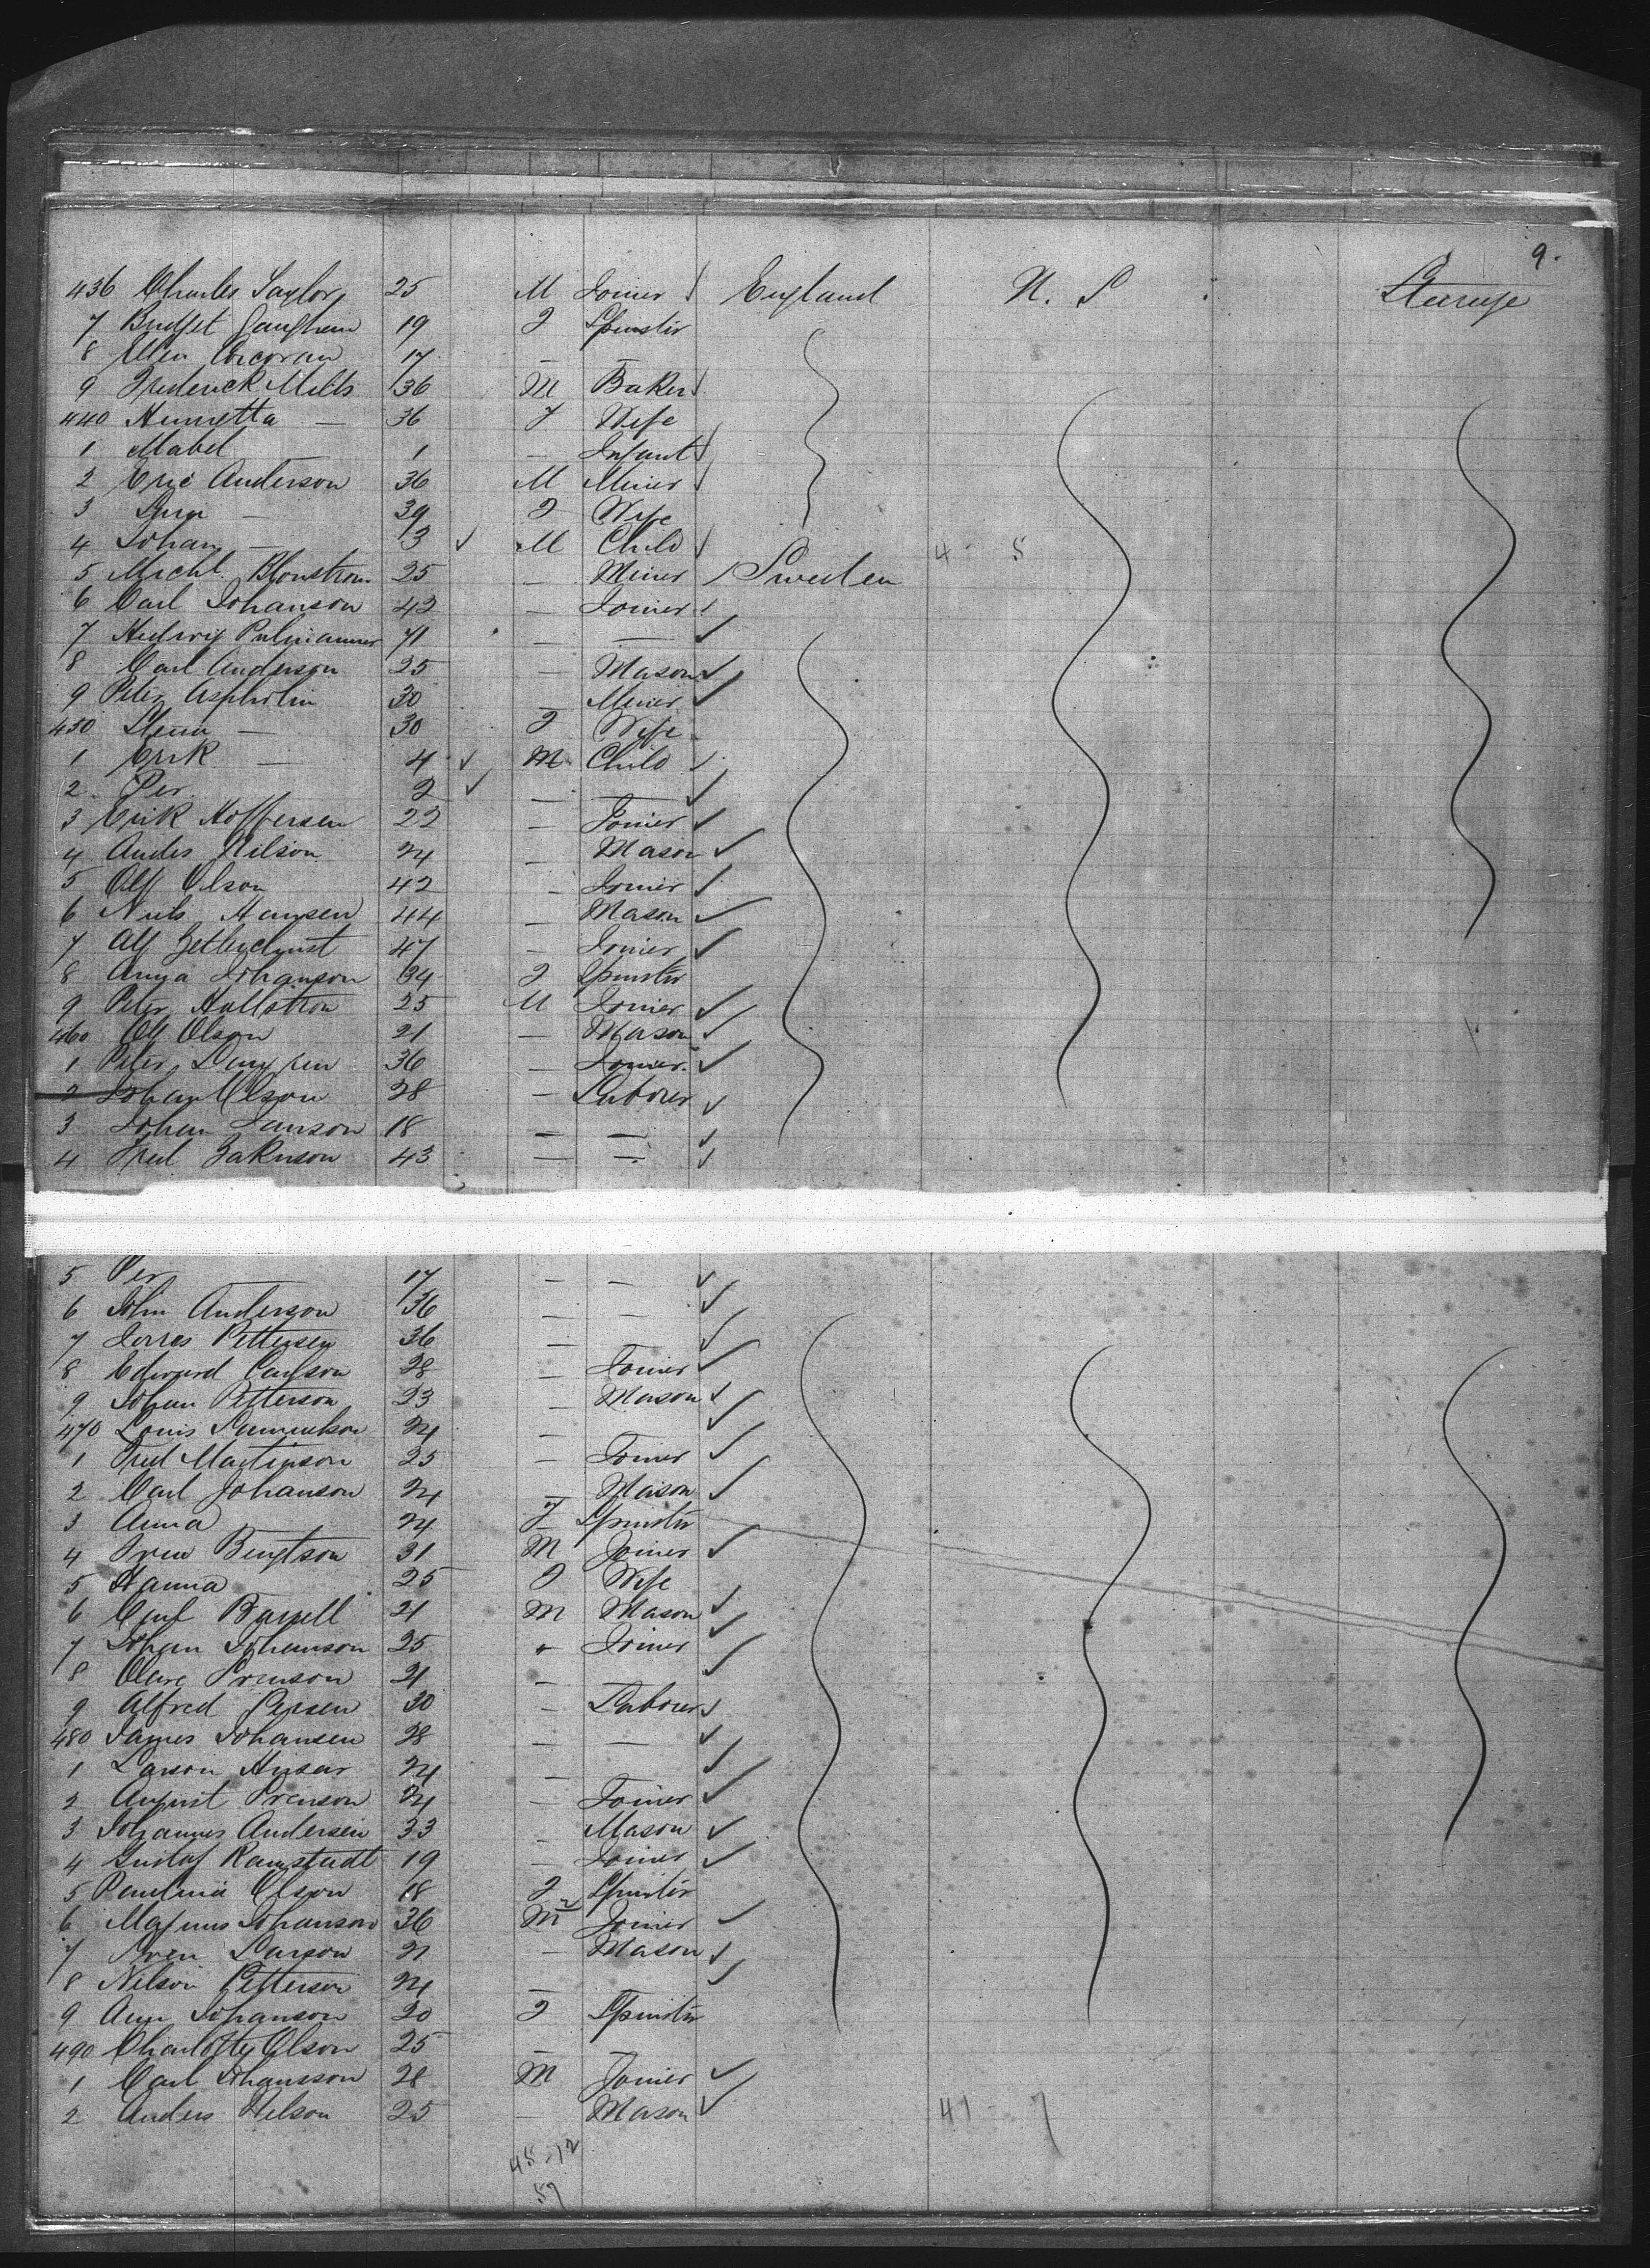 9.
436 Charles Saylor 25 M Joiner England U. S Steerage
7 Bridget Gaughran 19 F Spinster
8 Ellen Corcoran 17 — —
9 Frederick Mills 36 M Baker
440 Henrietta — 36 F Wife
1 Mabel 1 — Infant
2 Eric Anderson 36 M Miner
3 — 39 F Wife
4 Johan — 3 M Child 4 - 5
5 Michl. Blomstrom 25 — Miner Sweden
6 Carl Johanson 42 — Joiner
7 Hedwig 71 — —
8 Carl Anderson 25 — Mason
9 Peter Aspholm 30 — Miner
450 Stena — 30 F Wife
1 Erik — 4 M Child
2 Per 2 — —
3 Erik Hoffersen 22 — Joiner
4 Andes Nilson 24 — Mason
5 Alf Olson 42 — Joiner
6 Niels Hansen 44 — Mason
7 Alf Zetterqvist 47 — Joiner
8 Anna Johanson 34 F Spinster
9 Peter Hallstrom 25 M Joiner
460 Olf Olson 21 — Mason
1 Peter 36 — Joiner
2 Johan Olson 28 — Laborer
3 Johan Janson 18 — —
4 Fred Zakrison 43 — —
5 Per 17 — —
6 John Anderson 36 — —
7 Pettersen 36 —
8 Edward Carlson 28 — Joiner
9 Johan Petterson 23 — Mason
470 Louis Samuelson 24 —
1 Fred Martinson 25 — Joiner
2 Carl Johanson 24 — Mason
3 Anna 24 F Spinster
4 Sven Bengtson 31 M Joiner
5 Hanna 25 F Wife
6 21 M Mason
7 Johan Johanson 25 " Joiner
8 Olave Svenson 21 — —
9 Alfred Persen 30 — Laborer
480 James Johansen 28 — —
1 Larson 24 —
2 August Svenson 24 — Joiner
3 Johannes Andersen 33 — Mason
4 Gustaf Ramstadt 19 — Joiner
5 Paulina Olson 18 F Spinster
6 Magnus Johanson 36 M Joiner
7 Sven Larson 21 — Mason
8 Nelson Petterson 24 —
9 Ann Johanson 20 F Spinster
490 Charlotte Olson 25 —
1 Carl Johansson 28 M Joiner
2 Anders Nelson 25 — Mason 41 - 7
45 - 12
57